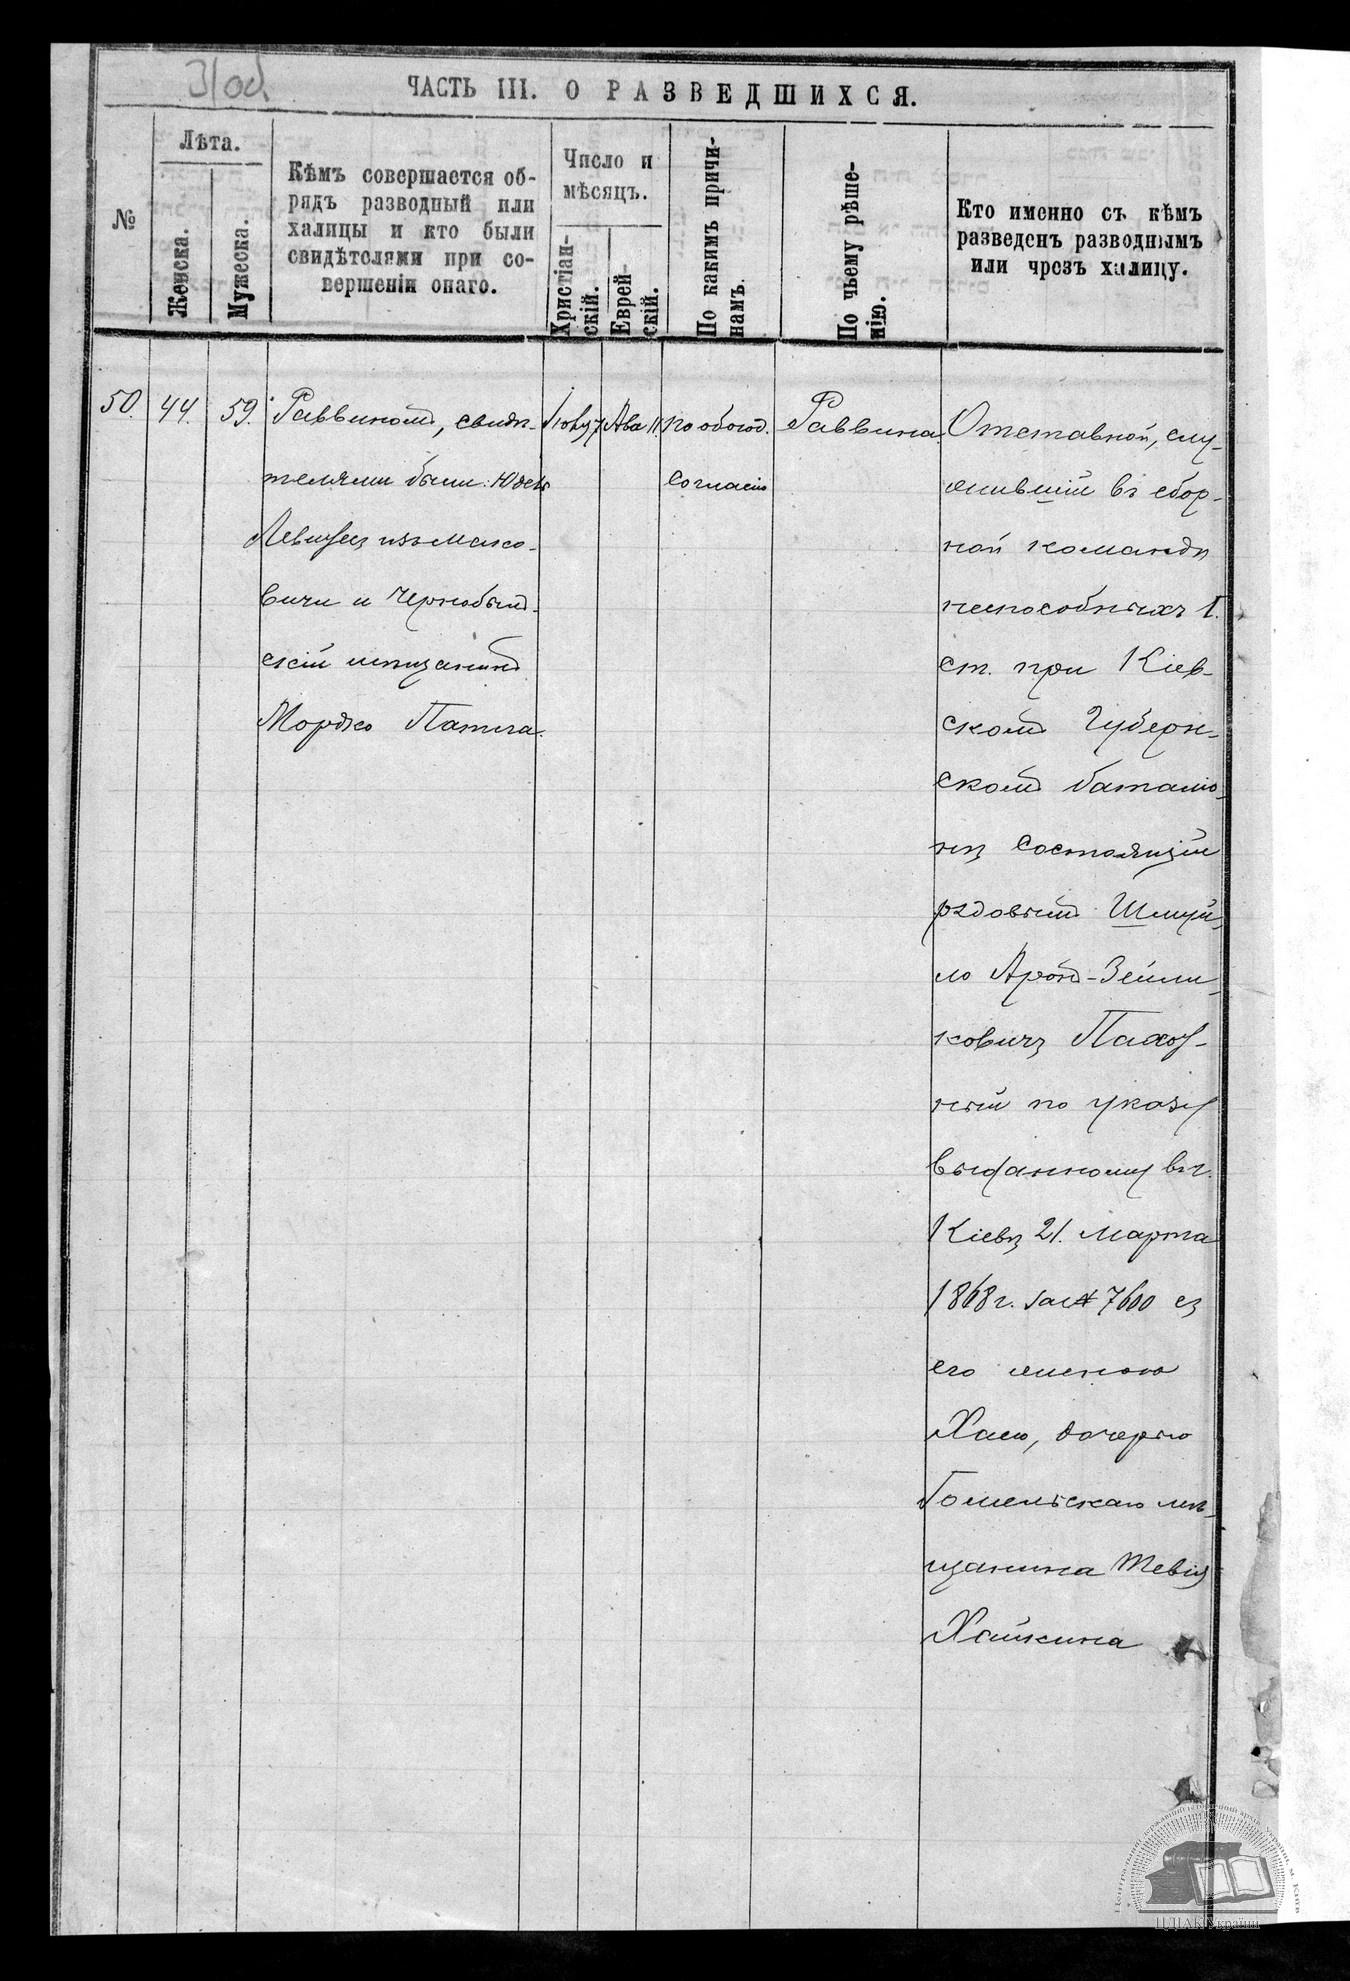 31об.
ЧАСТЬ III. О РАЗВЕДШИХСЯ.
№
Лѣта.
Женска.
Мужеска.
Кѣмъ совершается об-
рядъ разводный или
халицы и кто были
свидѣтелями при со-
вершеніи онаго.
Число и
мѣсяцъ.
Христіан-
скій.
Еврей-
скій.
По какимъ причи-
намъ.
По чьему рѣше-
нію.
Кто именно съ кѣмъ
разведенъ разводнымъ
или чрезъ халицу.
50.
44.
59.
Раввиномъ, свидѣ-
телями были: Юдель
изъ
и Чернобыль-
скій мѣщанинъ
Мордко
7
Ава 11.
по обоюд.
согласію
Раввина.
Отставной, слу-
жившій въ сбор-
ной командѣ
неспособныхъ 1.
ст. при Кіев-
скомъ Губерн-
скомъ баталіо-
нѣ состоящій
рядовымъ Шмуй-
ло Аронъ-Зейли-
ковичъ
ный по указу
выданному въ г.
Кіевѣ 21. Марта
1868 г. за № 7600 съ
его женою
Хаею, дочерью
Гомельскаго мѣ-
щанина Тевія
Хайкина
ЦДІАК України